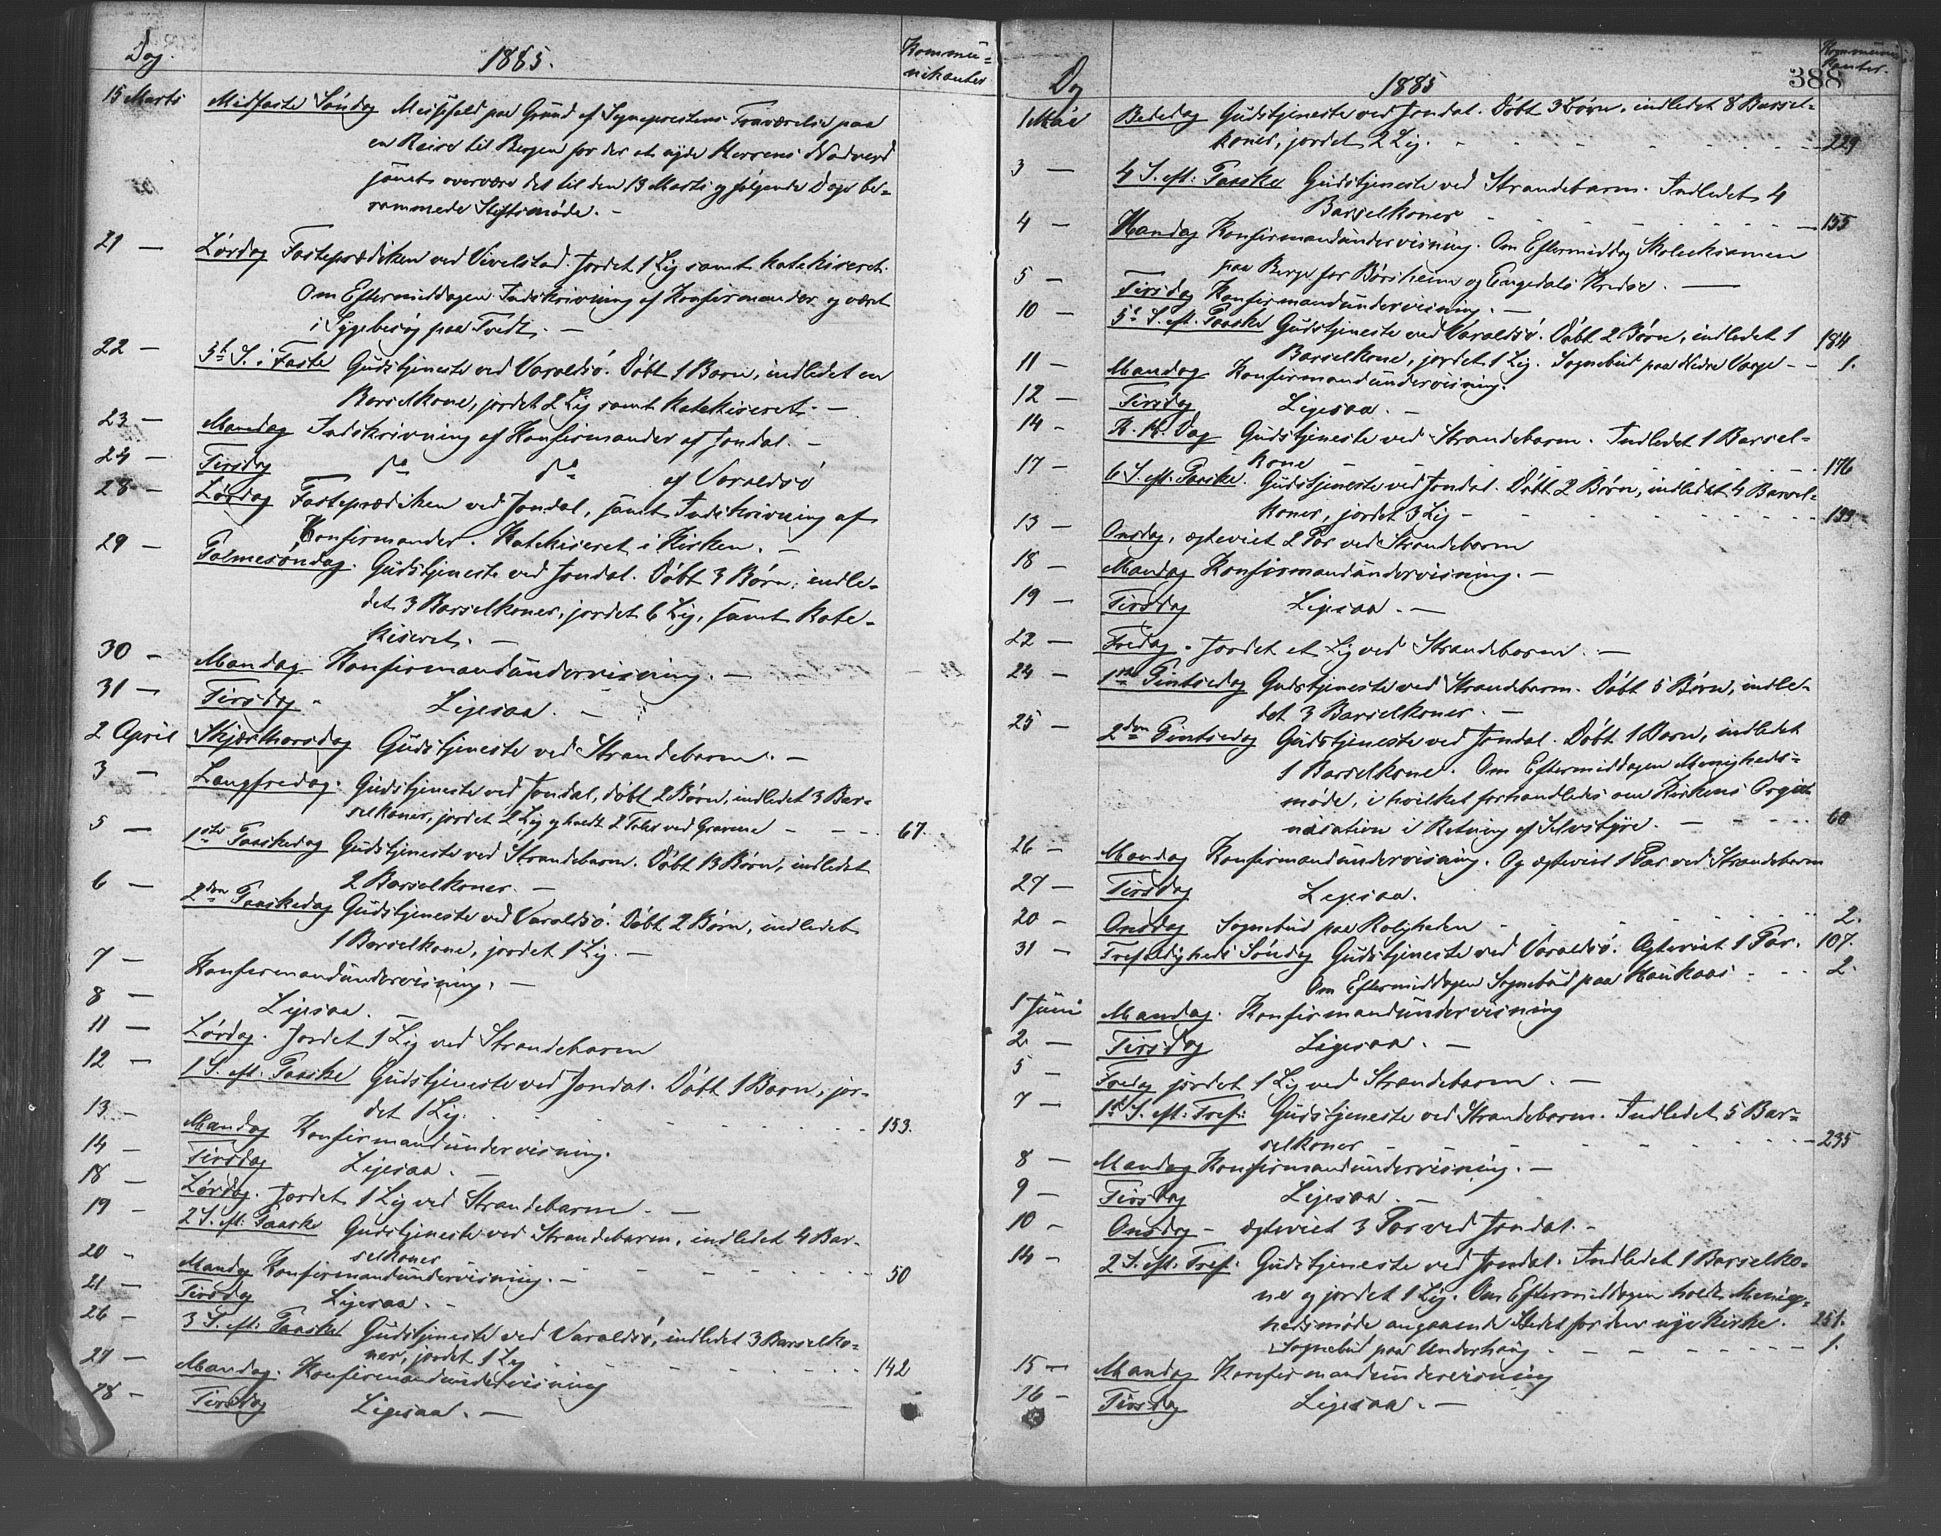 Dag. 1885. Kommu-
nikanter
15 Marts Midfaste Søndag Messefald paa Grund af Sognepræstens Fraværelse paa
en Reise til Bergen for der at nyde Herrens Nadverd
samt overvære det til den 13 Marts og følgende Dage be-
rammede Stiftsmøde. -
21 - Lørdag Fasteprædiken ved Vivelstad. Jordet 1 Lig samt katekiseret.
Om Eftermiddagen Indskrivning af Konfirmander og været
i Sygebesøg paa Tvedt. -
22 - 5te S. i Faste Gudstjeneste ved Varaldsö. Døbt 1 Barn, indledet en
Barselkone, jordet 2 Lig samt katekiseret. -
23 - Mandag Indskrivning af Konfirmander af Jondal. -
24 - Tirsdag do do af Varaldsö
28 - Lørdag Fasteprædiken ved Jondal, samt Indskrivning af
Konfirmander. Katekiseret i Kirken. -
29 - Palmesöndag. Gudstjeneste ved Jondal. Døbt 3 Børn, indle-
det 3 Barselkoner, jordet 6 Lig, samt kate-
kiseret. -
30 - Mandag Konfirmandundervisning. -
31 - Tirsdag - Ligesaa. -
2 April Skjærthorsdag Gudstjeneste ved Strandebarm. -
3 - Langfredag. Gudstjeneste ved Jondal, døbt 2 Børn, indledet 3 Bar-
selkoner, jordet 2 Lig og holdt 2 Taler ved Gravene - - - 67.
5 - 1ste Paaskedag Gudstjeneste ved Strandebarm. Døbt 13 Børn, indledet
2 Barselkoner. -
6 - 2den Paaskedag Gudstjeneste ved Varaldsö. Døbt 2 Børn, indledet
1 Barselkone, jordet 1 Lig. -
7 - Konfirmandundervisning. -
8 - Ligesaa. -
11 - Lørdag. Jordet 1 Lig ved Strandebarm
12 - 1 S. eft. Paaske Gudstjeneste ved Jondal. Døbt 1 Barn, jor-
det 1 Lig. - - - 153.
13 - Mandag Konfirmandundervisning.
14 - Tirsdag Ligesaa. -
18 - Lørdag. Jordet 1 Lig ved Strandebarm. -
19 - 2 S. eft. Paaske Gudstjeneste ved Strandebarm, indledet 4 Bar-
selkoner - - - 50
20 - Mandag Konfirmandundervisning. -
21 - Tirsdag Ligesaa. -
26 - 3 S. eft. Paaske Gudstjeneste ved Varaldsö, indledet 3 Barselko-
ner, jordet 1 Lig - - - 142
27 - Mandag. Konfirmandundervisning
28 - Tirsdag Ligesaa. -
Dag 1885 Kommuni-
kanter.
388
1 Mai Bededag Gudstjeneste ved Jondal. Døbt 3 Børn, indledet 8 Barsel-
koner, jordet 2 Lig. - - - 229
3 - 4 S. eft. Paaske Gudstjeneste ved Strandebarm. Indledet 4
Barselkoner - - - 155
4 - Mandag Konfirmandundervisning. Om Eftermiddag Skoleeksamen
paa Berge for Børsheim og Engedals Kredse. -
5 - Tirsdag Konfirmandundervisning. -
10 - 5te S. eft. Paaske Gudstjeneste ved Varaldsö. Døbt 2 Børn, indledet 1
Barselkone, jordet 1 Lig. Sognebud paa Nedre Vaage - - 184
1.
11 - Mandag Konfirmandundervisning.
12 - Tirsdag Ligesaa. -
14 - K. H. Dag Gudstjeneste ved Strandebarm. Indledet 1 Barsel-
kone - - - 176
17 - 6 S. eft. Paaske. Gudstjeneste ved Jondal. Døbt 2 Børn, indledet 4 Barsel-
koner, jordet 3 Lig - - - 199
13 - Onsdag, egteviet 2 Par ved Strandebarm
18 - Mandag Konfirmandundervisning. -
19 - Tirsdag Ligesaa. -
22 - Fredag. Jordet et Lig ved Strandebarm. -
24 - 1ste Pintsedag Gudstjeneste ved Strandebarm. Døbt 5 Børn, indle-
det 3 Barselkoner. -
25 - 2den Pintsedag Gudstjeneste ved Jondal. Døbt 1 Barn, indledet
1 Barselkone. Om Eftermiddagen Menigheds-
møde, i hvilket forhandledes om Kirkens Orga-
nisation i Retning af Selvstyre. - - - 60
26 - Mandag Konfirmandundervisning. Og egteviet 1 Par ved Strandebarm
27 - Tirsdag Ligesaa.
20 - Onsdag Sognebud paa Roligheden - - - 2.
31 - Trefoldigheds Søndag Gudstjeneste ved Varaldsö. Egteviet 1 Par. 107.
Om Eftermiddagen Sognebud paa Haukaas - - - 2.
1 Juni Mandag. Konfirmandundervisning
2 - Tirsdag Ligesaa. -
5 - Fredag jordet 1 Lig ved Strandebarm. -
7 - 1ste S. eft. Tref: Gudstjeneste ved Strandebarm. Indledet 5 Bar-
selkoner - - - 235
8 - Mandag Konfirmandundervisning. -
9 - Tirsdag Ligesaa. -
10 - Onsdag - egteviet 3 Par ved Jondal. -
14 - 2 S. eft. Tref. Gudstjeneste ved Jondal. Indledet 1 Barselko-
ne og jordet 1 Lig. Om Eftermiddagen holdt Menig-
hedsmøde angaaende Stedet for den nye Kirke. 251.
Sognebud paa Underhaug - - - 1.
15 - Mandag Konfirmandundervisning
16 - Tirsdag Ligesaa. -